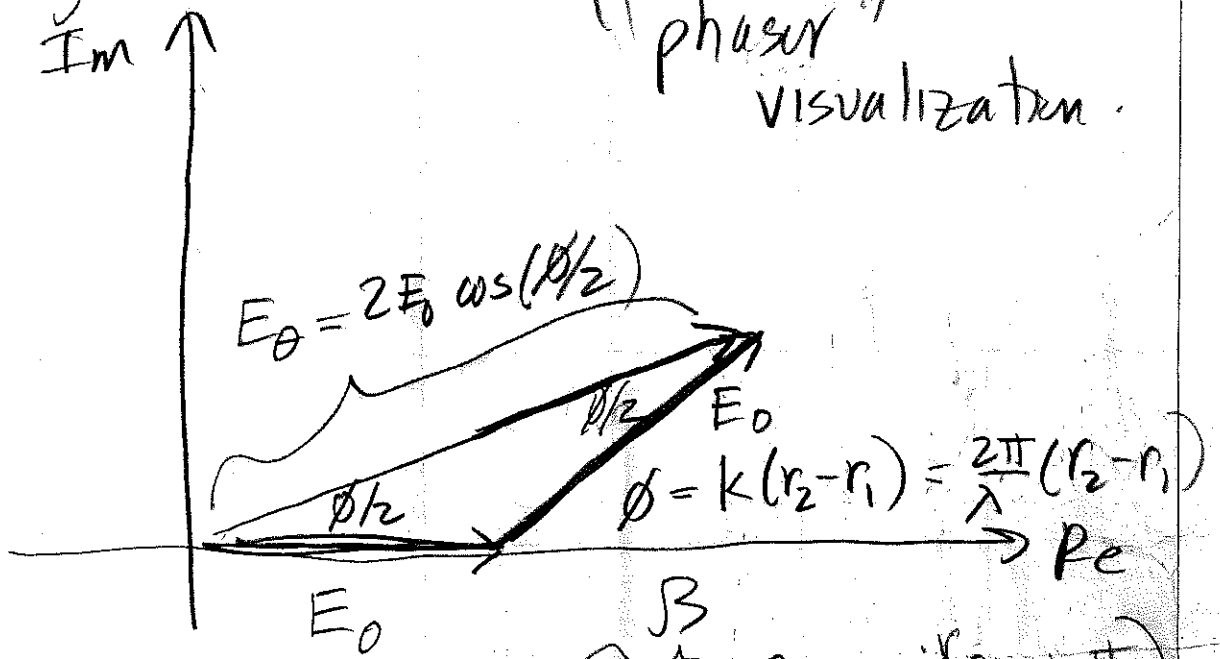 Im
"phaser"
visualization.
E_θ = 2E_0 cos(ø/2)
ø/2
E_0
ø/2
ø = k(r_2-r_1) = 2π/λ (r_2-r_1)
Re
E_0